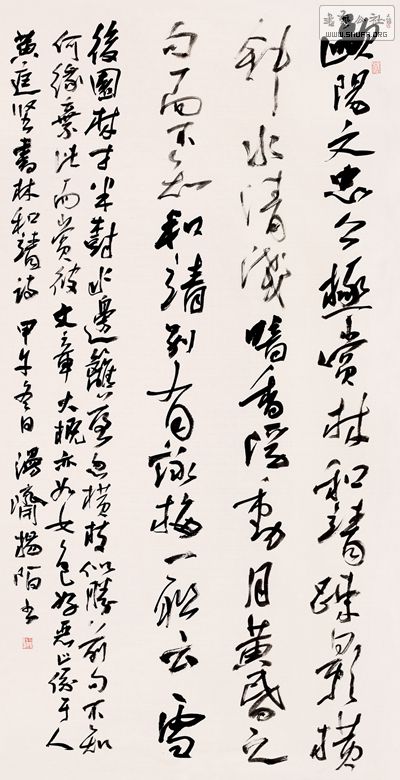 歐陽文忠公極賞林和靖疎影橫
斜水清淺暗香浮動月黃昏之
句而不知和靖別有詠梅一聯云雪
後園林才半樹水邊籬落忽橫枝似勝前句不知
何緣棄此而賞彼文章大概亦如女色好惡止係于人
黄庭坚書林和靖詩 甲午冬日 濟楊陌書
WWW.SHUFA.ORG